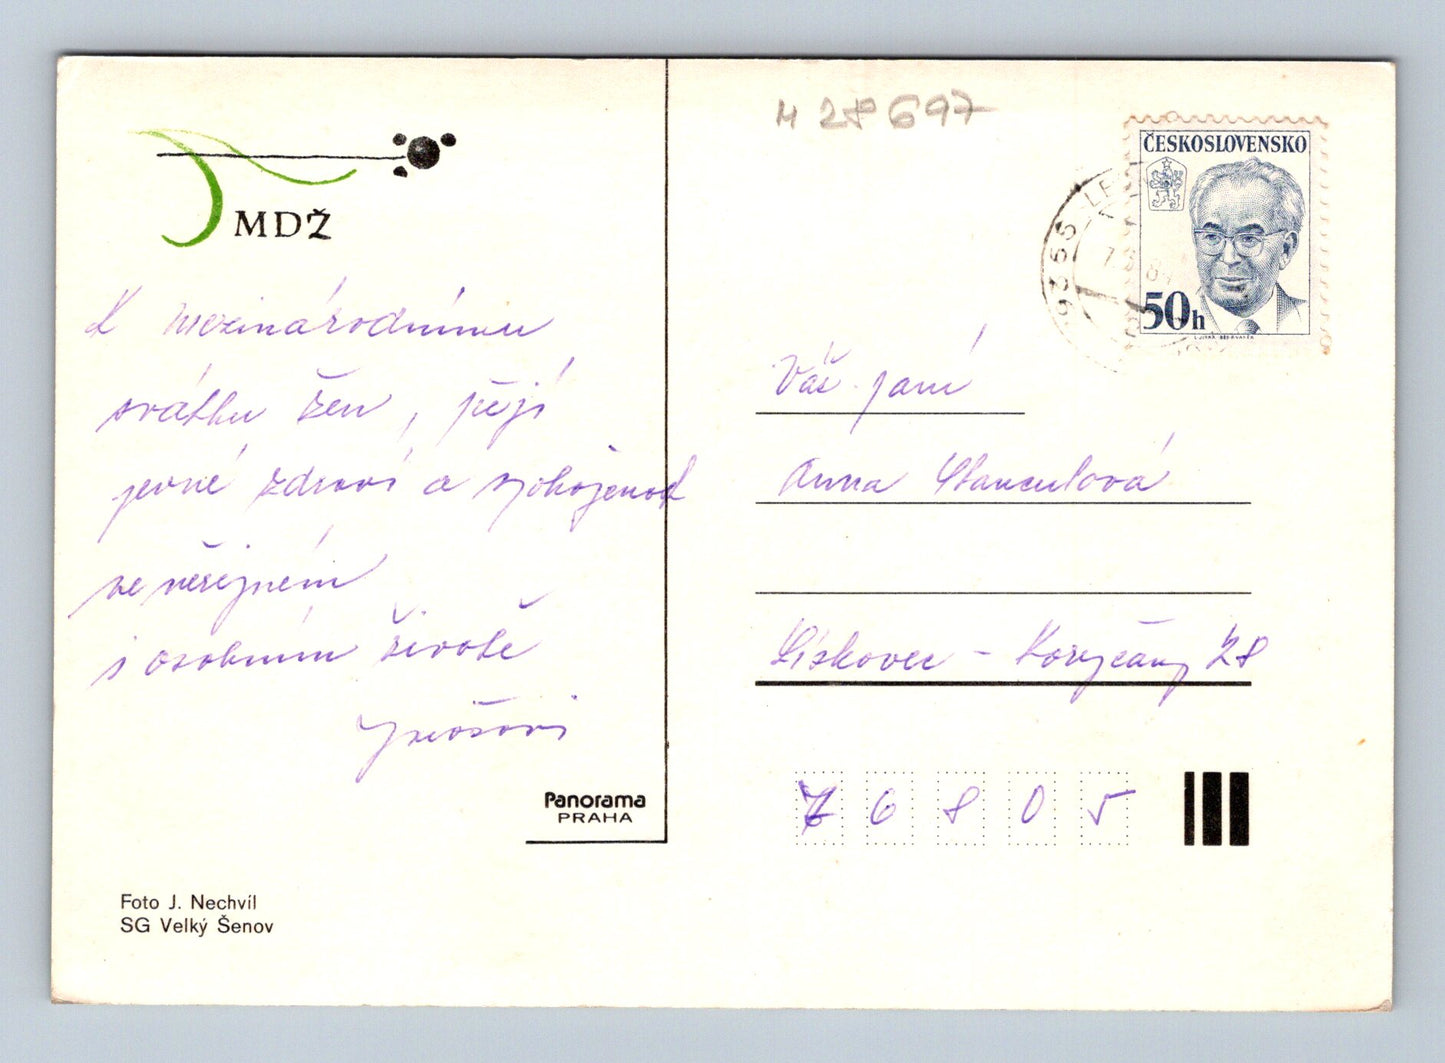 MDŽ
K mezinárodnímu
svátku žen, přejí
pevné zdraví a spokojenost
ve veřejném
i osobním životě
Panorama
PRAHA
Foto J. Nechvíl
SG Velký Šenov
28697
ČESKOSLOVENSKO
50h
Váž. paní
Anna Stanculová
Lískovec - Koryčany 28
76805